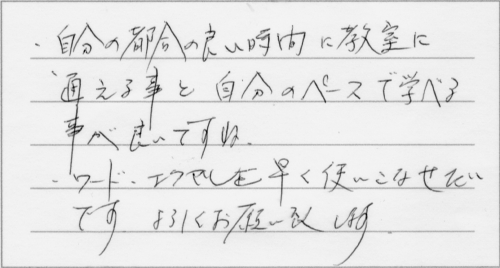 ・自分の都合の良い時間に教室に
通える事と自分のペースで学べる
事が良いですね。
・ワード・エクセルを早く使いこなせたい
です よろしくお願い致します